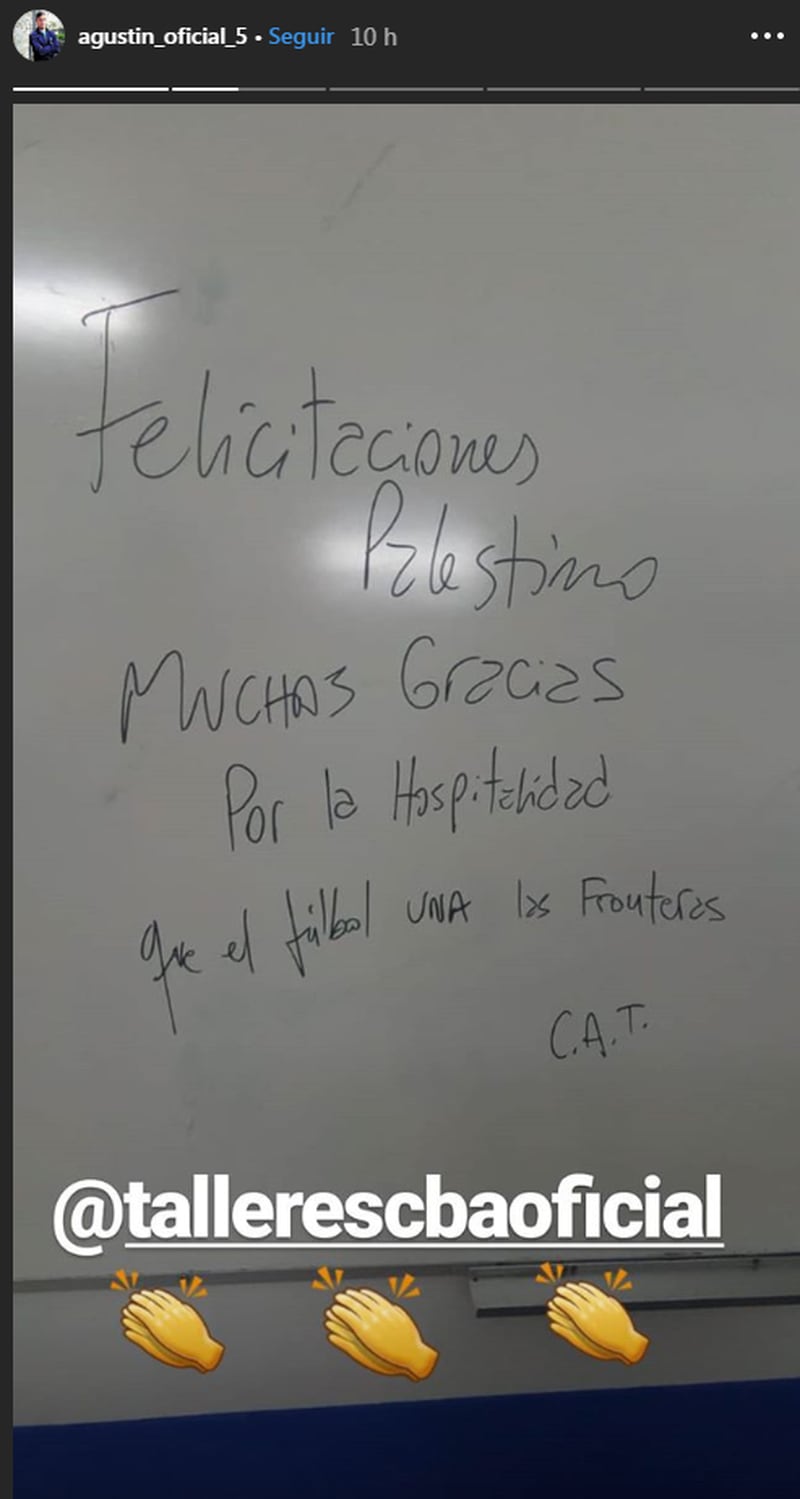 agustin_oficial_5 • Seguir 10 h
Felicitaciones
Palestino
MUCHAS Gracias
Por la Hospitalidad
que el fútbol UNA las Fronteras
C.A.T.
@tallerescbaoficial